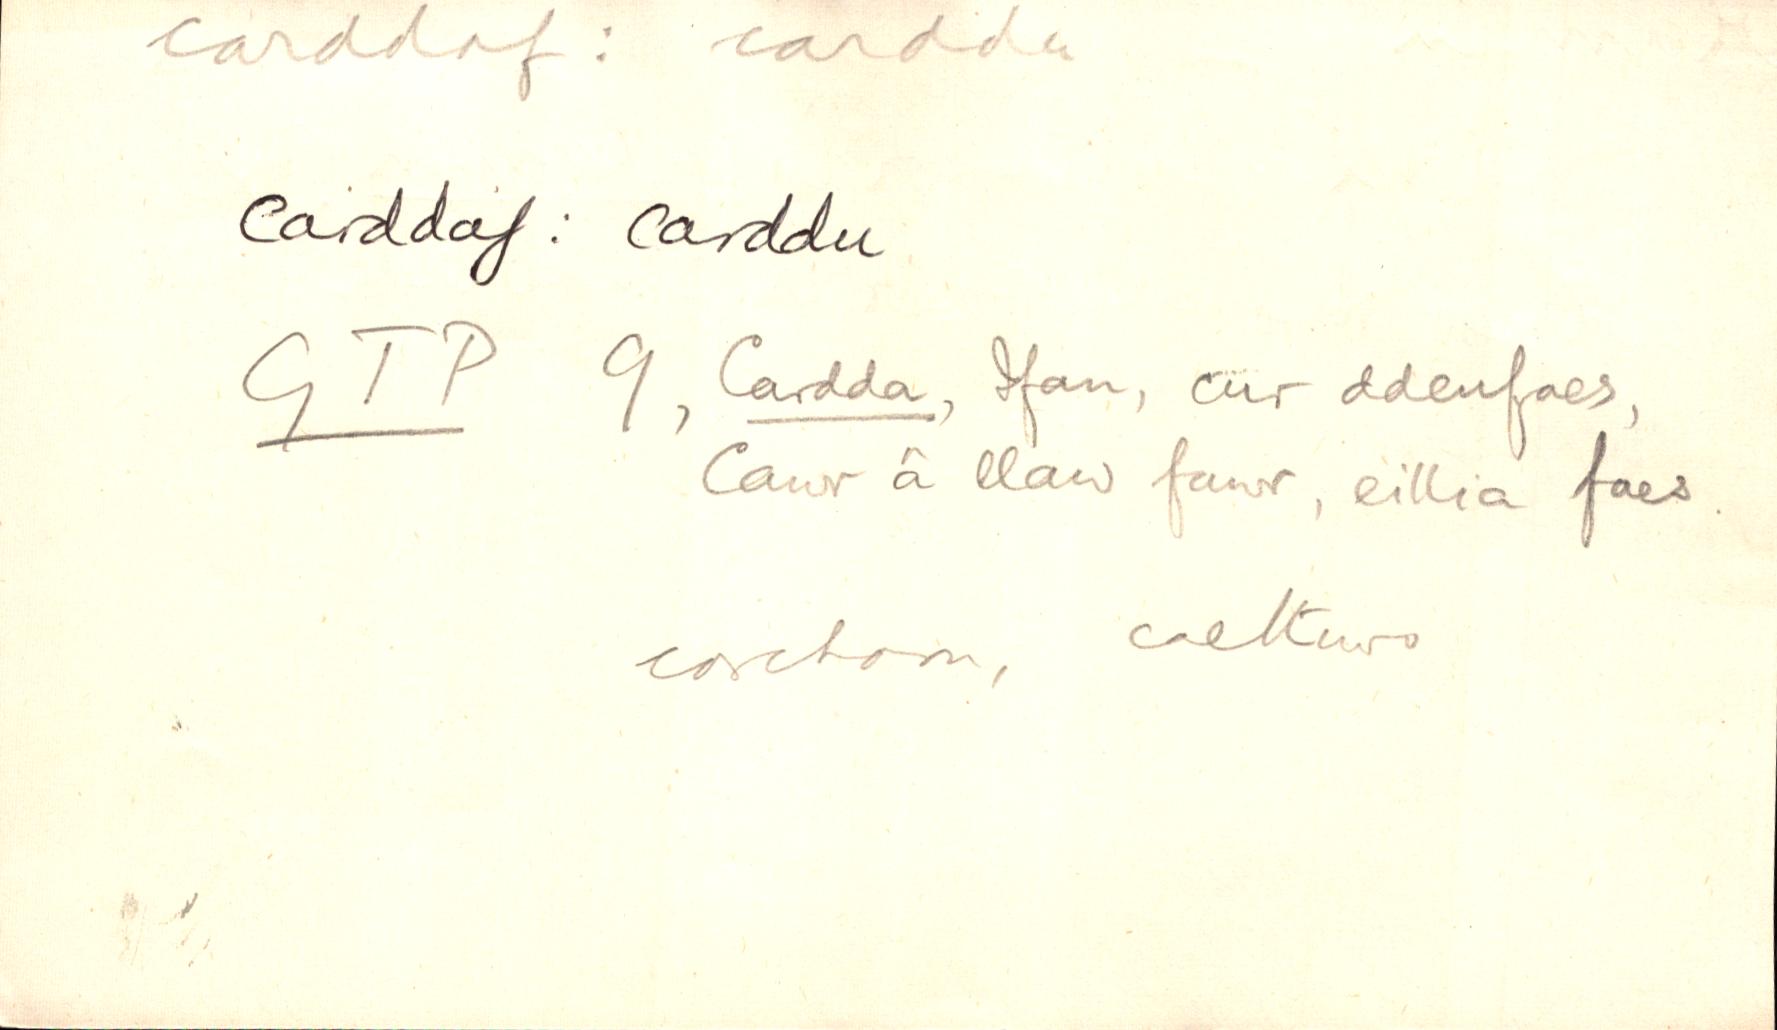 carddaf: carddu
carddaf: carddu
GTP 9, Cardda, Ifan, cur ddenfaes,
Cawr â llaw fawr, eillia faes.